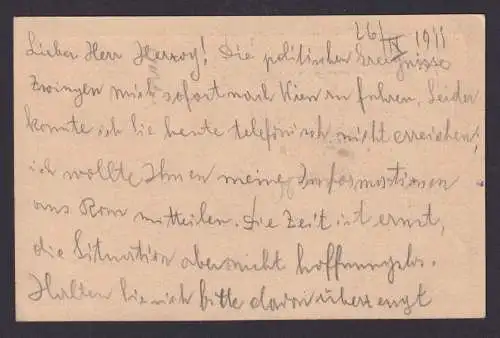 26/IX 1911
Lieber Herr Herzog! Die politischen Ereignisse
zwingen mich sofort nach Wien zu fahren. Leider
konnte ich Sie heute telefonisch nicht erreichen,
ich wollte Ihnen meine Informationen
aus Rom mitteilen. Die Zeit ist ernst,
die Situation aber nicht hoffnungslos.
Halten Sie mich bitte davon überzeugt